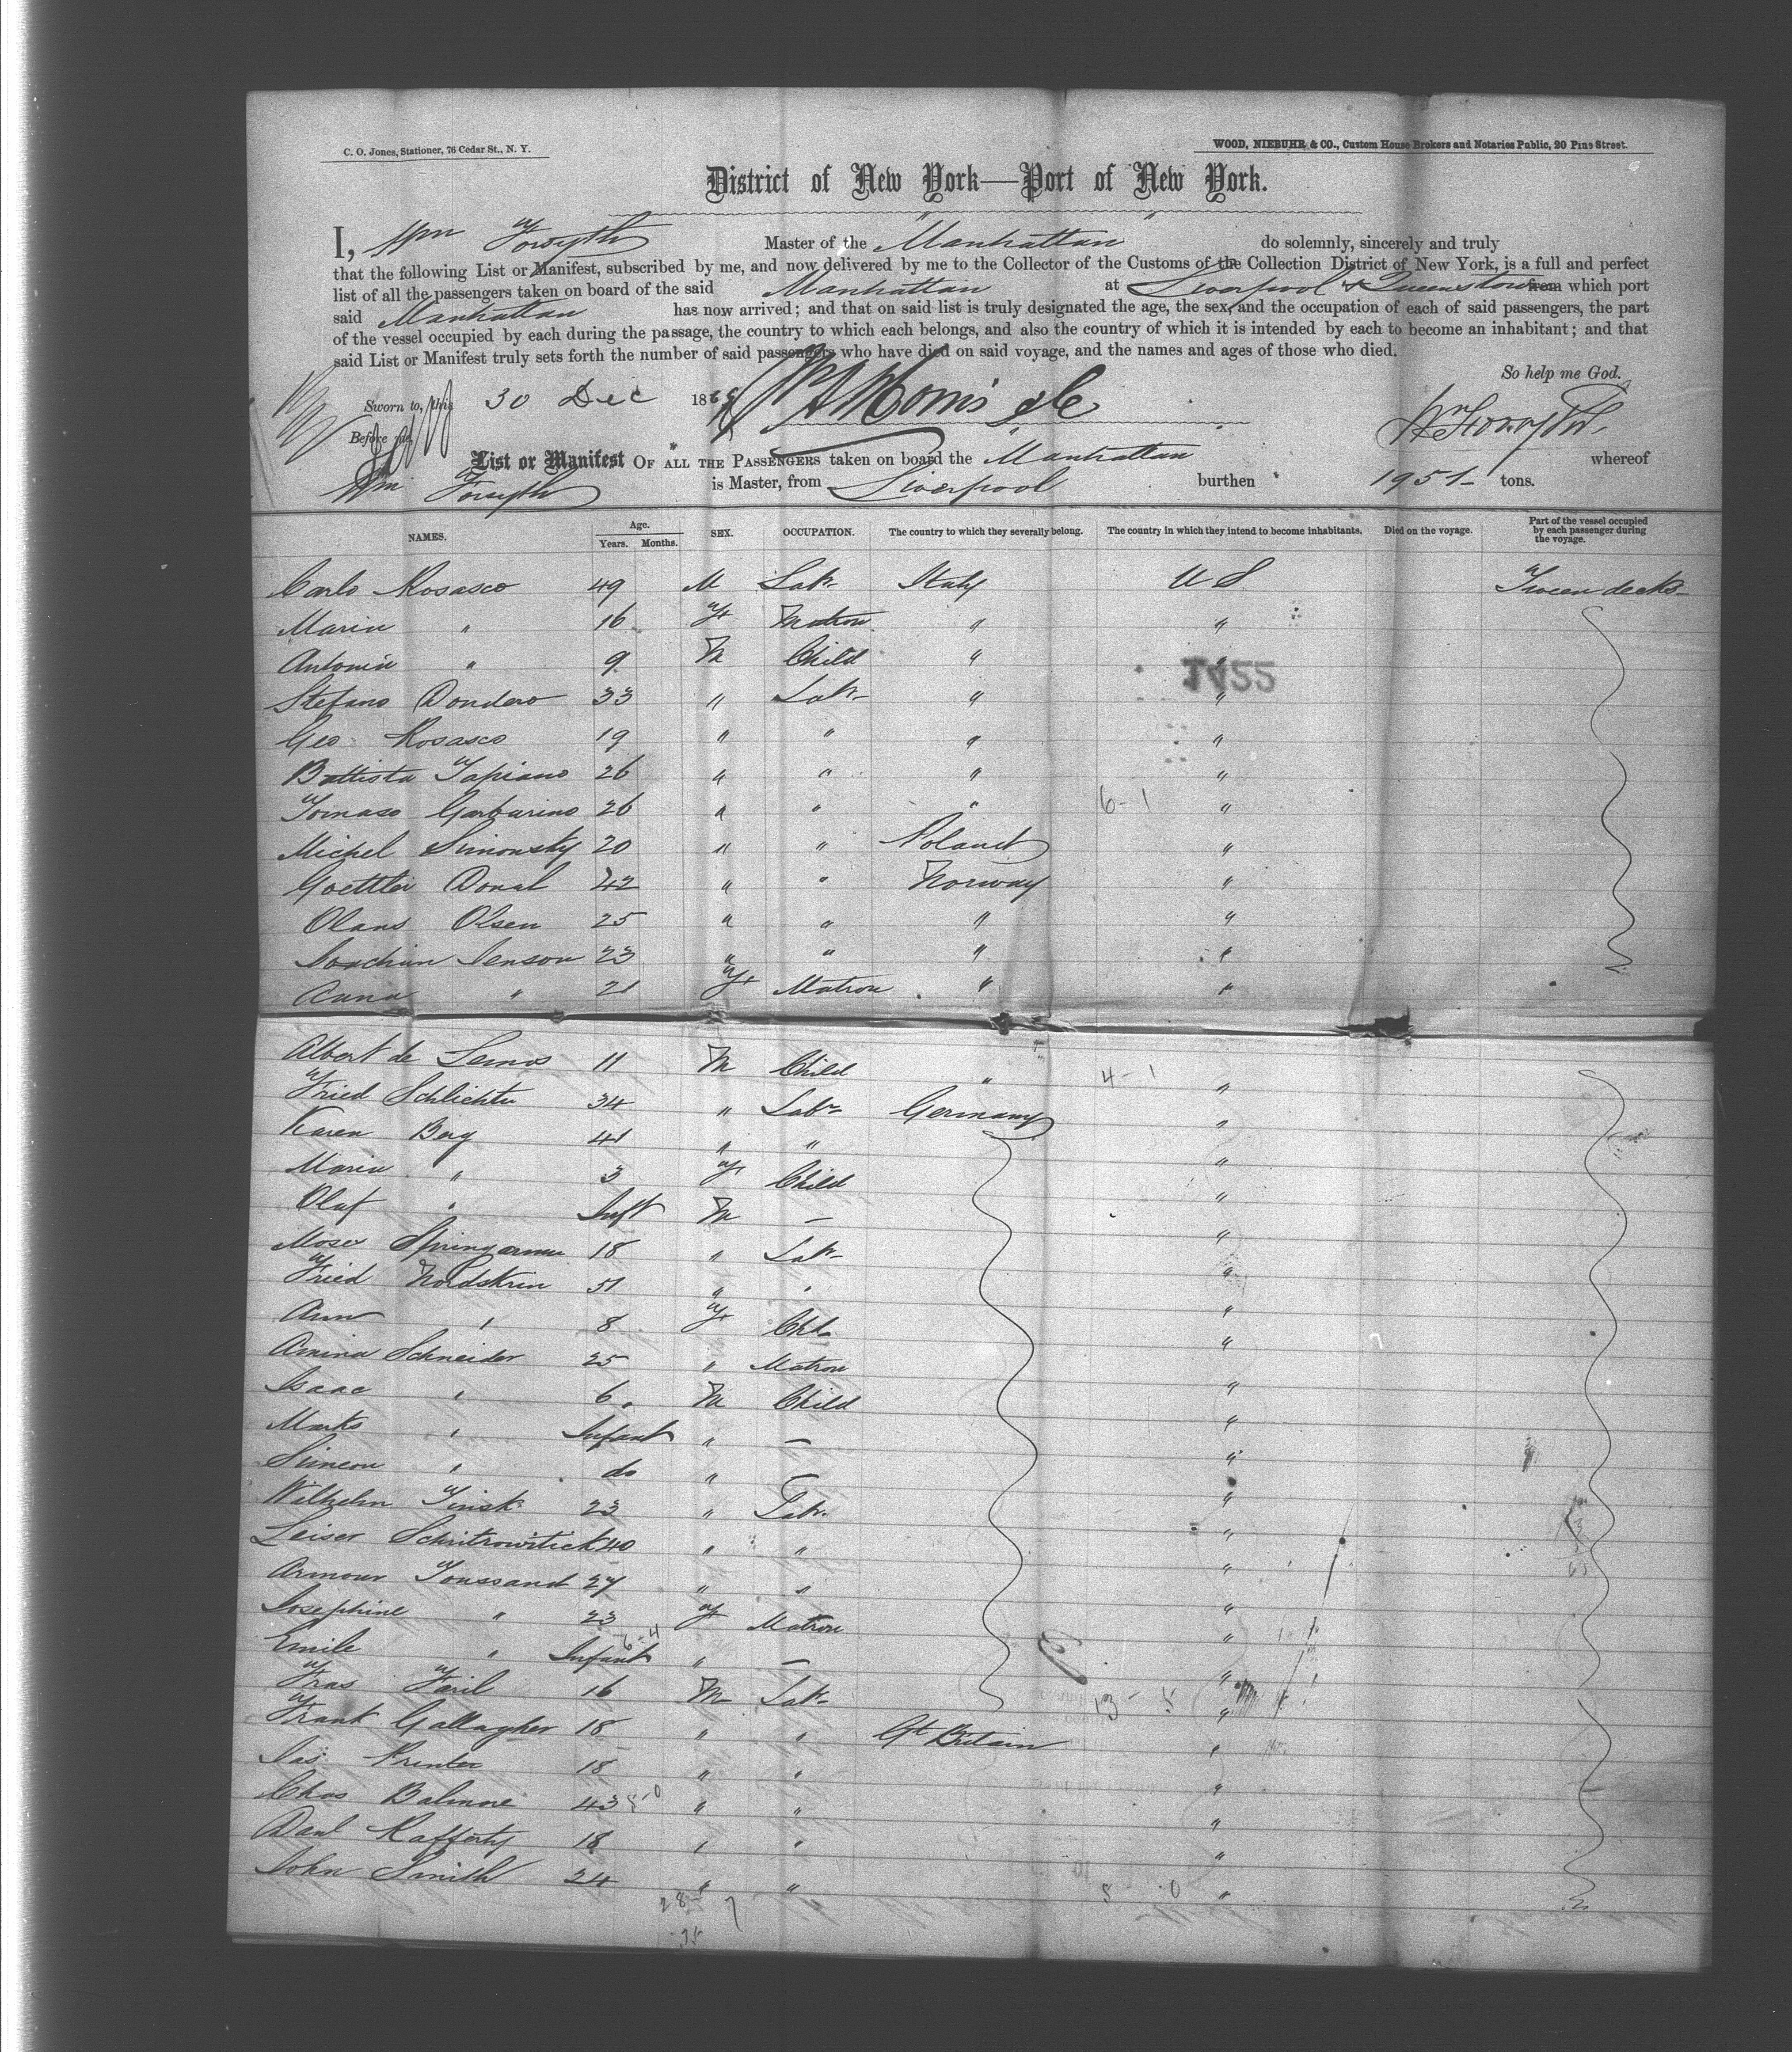 C. O. Jones, Stationer, 76 Cedar St., N. Y.
WOOD, NIEBUHR & CO., Custom House Brokers and Notaries Public, 20 Pine Street.
District of New York—Port of New York.
I, Wm Forsyth Master of the Manhattan do solemnly, sincerely and truly
that the following List or Manifest, subscribed by me, and now delivered by me to the Collector of the Customs of the Collection District of New York, is a full and perfect
list of all the passengers taken on board of the said Manhattan at Liverpool & Queenstown from which port
said Manhattan has now arrived; and that on said list is truly designated the age, the sex, and the occupation of each of said passengers, the part
of the vessel occupied by each during the passage, the country to which each belongs, and also the country of which it is intended by each to become an inhabitant; and that
said List or Manifest truly sets forth the number of said passengers who have died on said voyage, and the names and ages of those who died.
So help me God.
Sworn to, this 30 Dec 18
Wm Forsyth
Before me,
List or Manifest OF ALL THE PASSENGERS taken on board the Manhattan whereof
Wm Forsyth is Master, from Liverpool burthen 1951 tons.
NAMES. Age. Years. Months. SEX. OCCUPATION. The country to which they severally belong. The country in which they intend to become inhabitants. Died on the voyage. Part of the vessel occupied by each passenger during the voyage.
Carlo Rosasco 49 M Labr Italy U S Tween decks
Maria " 16 F Matron " "
Antonia " 9 M Child " "
1455
Stefano Dondero 33 " Labr " "
Geo Rosasco 19 " " " "
Battista Tapiano 26 " " " "
Tomaso Garbarino 26 " " " 6-1 "
Michel Simonsky 20 " " Poland "
Goettlei Donal 42 " " Norway "
Olans Olsen 25 " " " "
Joachim Jenson 23 " " " "
Anna " 21 F Matron " "
Albert de Lemos 11 M Child " 4-1 "
Fried Schlichte 34 " Labr Germany "
Karen Berg 41 " " "
Maria " 3 F Child "
Olaf " Inft M — "
Moses 18 " Labr "
Fried Nordskrin 51 " " "
Ann " 8 F Chd "
Amina Schneider 25 " Matron "
Isaac " 6 M Child "
Marks " Infant " — "
Simeon " do " — "
Wilhelm Tinsk 23 " Labr "
Leiser Schritrowitick 40 " " "
Armour Toussand 27 " " "
Josephine " 23 F Matron "
Emile " Infant " — "
Fras Faril 16 M Labr 13 "
Frank Gallagher 18 " " Gt Britain "
Jas Printer 18 " " "
Chas Balmore 43 " " "
Danl Rafferty 18 " " "
John Smith 24 " " 5 0 "
28 7
35